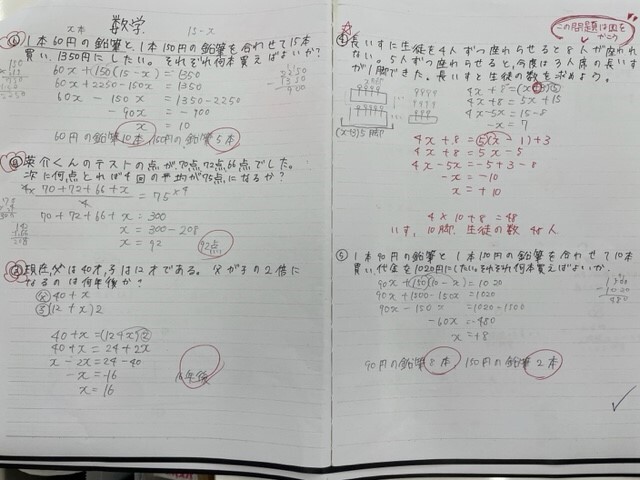 x本 数学 15-x
① 1本60円の鉛筆と、1本150円の鉛筆を合わせて15本
買い、1350円にしたい。それぞれ何本買えばよいか?
60x+(150)(15-x)=1350
60x+2250-150x=1350
60x-150x=1350-2250
-90x=-900
x=10
60円の鉛筆10本、150円の鉛筆5本
② 英介くんのテストの点が、70点,72点,66点でした。
次に何点とれば4回の平均が75点になるか?
70+72+66+x
4
=75×4
70+72+66+x=300
x=300-208
x=92
92点
③ 現在、父は40才、子は12才である。父が子の2倍に
なるのは何年後か?
父 40+x
子 (12+x)2
40+x=(12+x)2
40+x=24+2x
x-2x=24-40
-x=-16
x=16
16年後
この問題は図を
かこう
④ 長いすに生徒を4人ずつ座らせると8人が座われ
ない。5人ずつ座らせると、今度は3人席の長いす
が1脚できた。長いすと生徒の数を求めよう。
4x+8=3x+15
4x-5x=15-8
-x=7
4x+8=5(x-1)+3
4x+8=5x-5
4x-5x=-5+3-8
-x=-10
x=+10
4×10+8=48
いす、10脚、生徒の数 48人
⑤ 1本90円の鉛筆と1本150円の鉛筆を合わせて10本
買い、代金を1020円にしたい。それぞれ何本買えばよいか。
90x+(150)(10-x)=1020
90x+1500-150x=1020
90x-150x=1020-1500
-60x=-480
x=+8
90円の鉛筆8本、150円の鉛筆2本